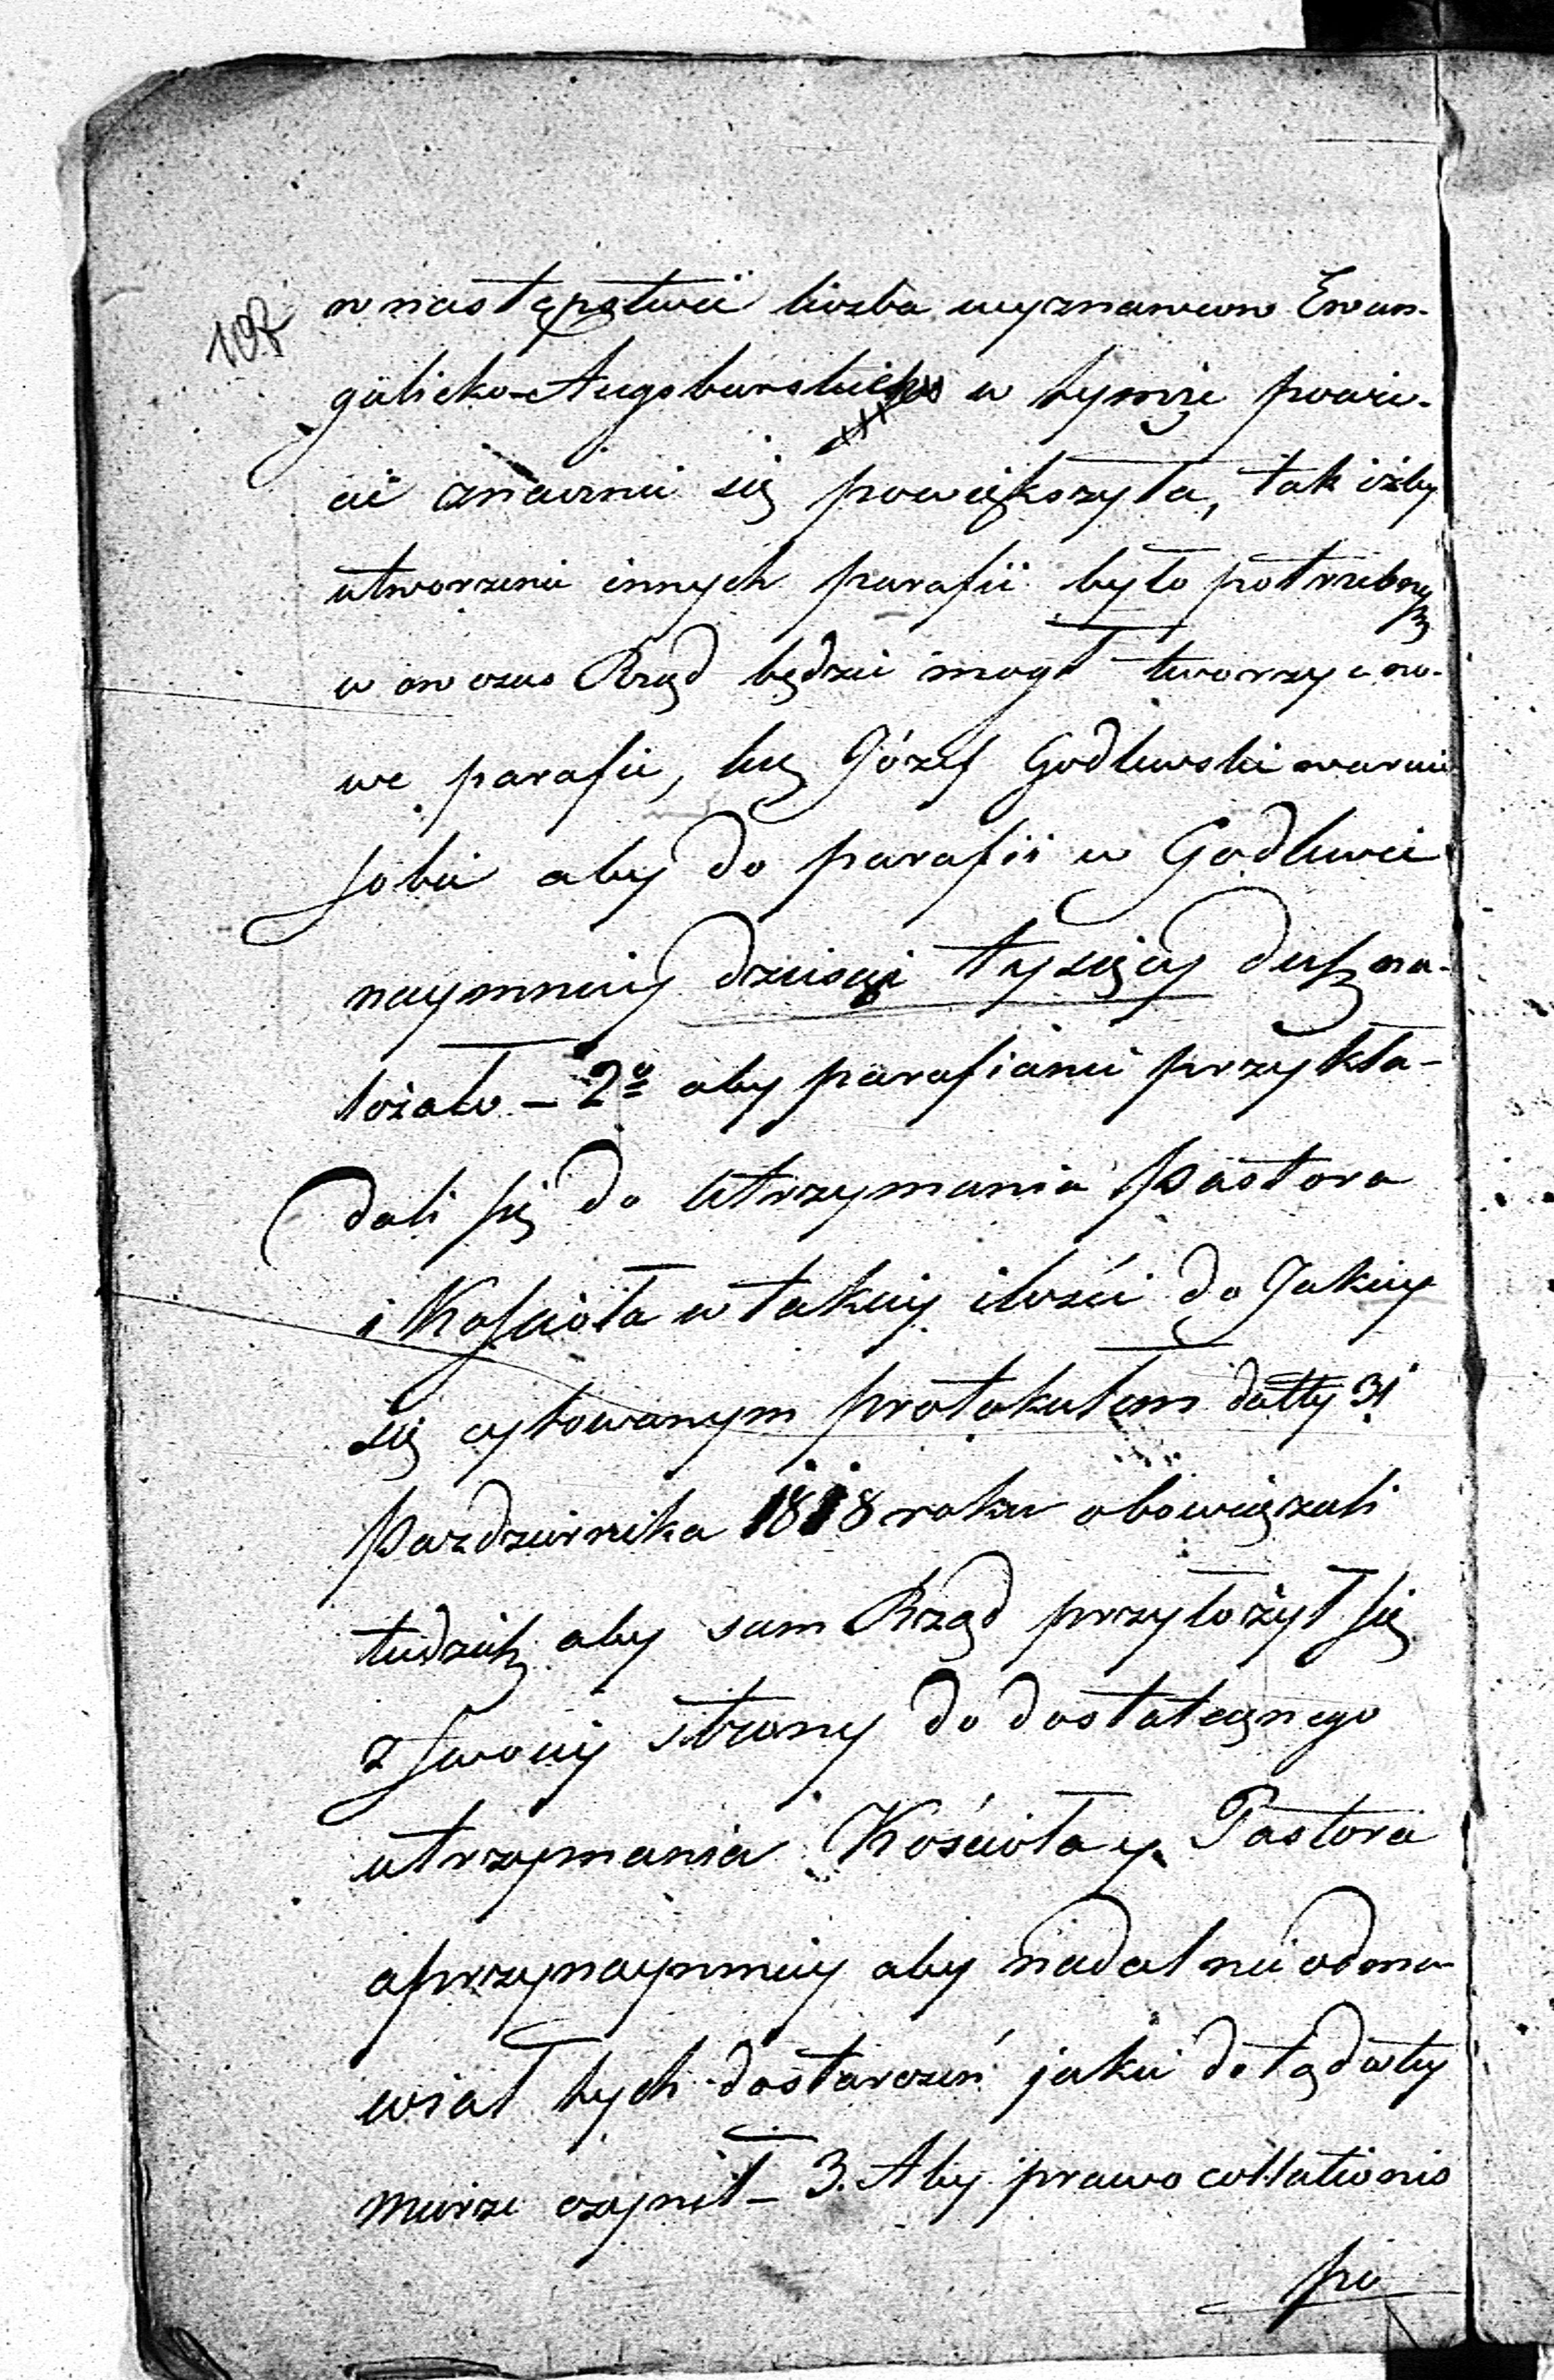 107
w następstwie liczba wyznawców Ewan-
gelicko-Augsburskich w tymże powie-
cie znacznie się powiększyła, tak iżby
utworzenie innych parafii było potrzebnym
w ow czas Rząd będzie mógł tworzyć no-
we parafie, lecz Józef Godlewski waruie
sobie aby do parafii w Godlewie
naymniey dziesięć tysięcy dusz na-
leżało – 2º aby parafianie przykła-
dali się do utrzymania Pastora
i Kościoła w takiey ilości do Jakiey
się cytowanym protokułem datty 31
Pazdziernika 1818 roku obowiązali
tudzież aby sam Rząd przyłożył się
z swoiey strony do dostatecznego
utrzymania Kościoła y Pastora
a przynaymniey aby nadal nie odma-
wiał tych dostarczeń jakie dotąd w tey
mierze czynił – 3. Aby prawo collationis
po